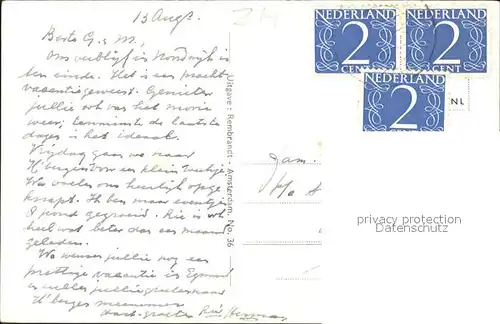 13 Aug.
NEDERLAND
2
CENT
NEDERLAND
2
CENT
NEDERLAND
2
NL
Beste G. & M.,
Ons verblijf in Noordwijk is
ten einde. Het is een pracht
vacantie geweest. Genieten
jullie ook van het mooie
weer, tenminste de laatste
dagen is het ideaal.
Vrijdag gaan we naar
voor een klein
We voelen ons heerlijk opge
knapt. Ik ben maar eventjes
pond gegroeid. Rie is ook
heel wat beter dan een maand
geleden.
We wensen jullie nog een
prettige vacantie in Egmond
en zullen jullie
meenemen
Hart. groeten Rie Herman
Uitgave: Rembrandt - Amsterdam. No. 36
Fam.
privacy protection
Datenschutz